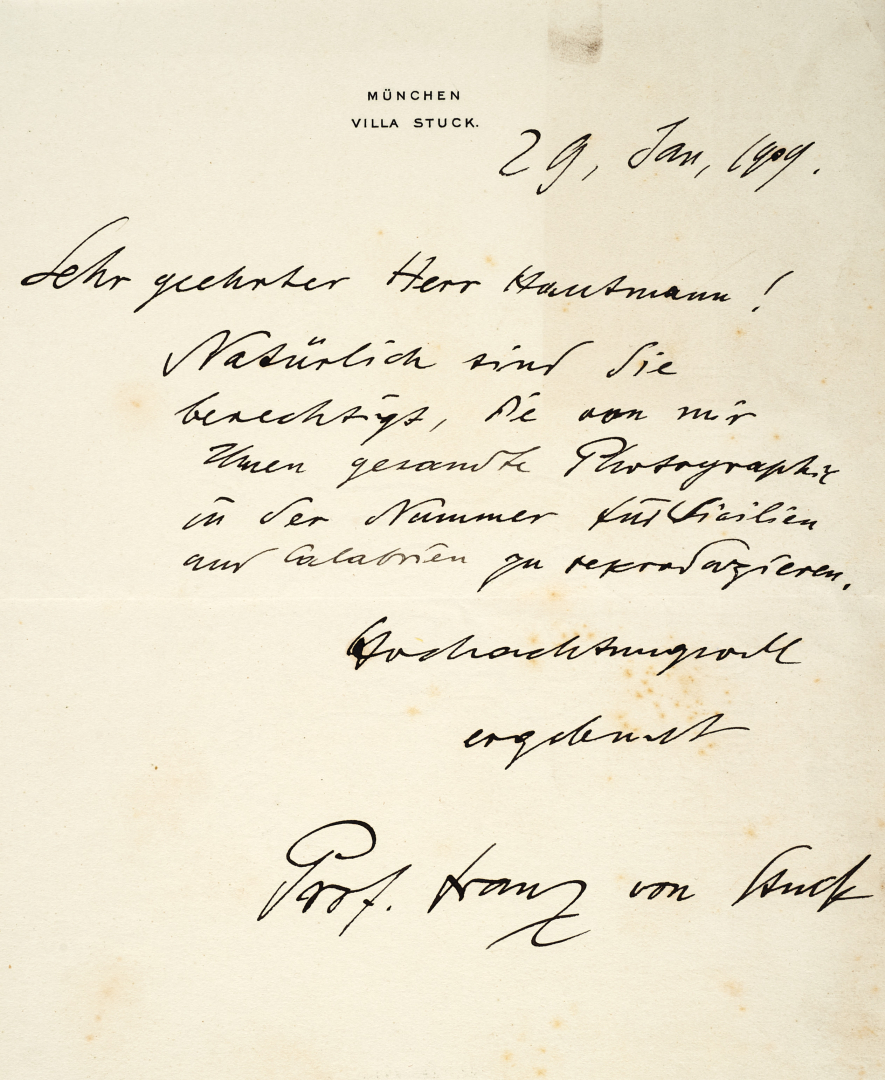 MÜNCHEN
VILLA STUCK.
29, Jan, 1909.
Sehr geehrter Herr Hautmann!
Natürlich sind Sie
berechtigt, die von mir
Ihnen gesandte Photographie
in der Nummer für Sicilien
und Calabrien zu reproduzieren.
Hochachtungsvoll
ergebenst
Prof. Franz von Stuck